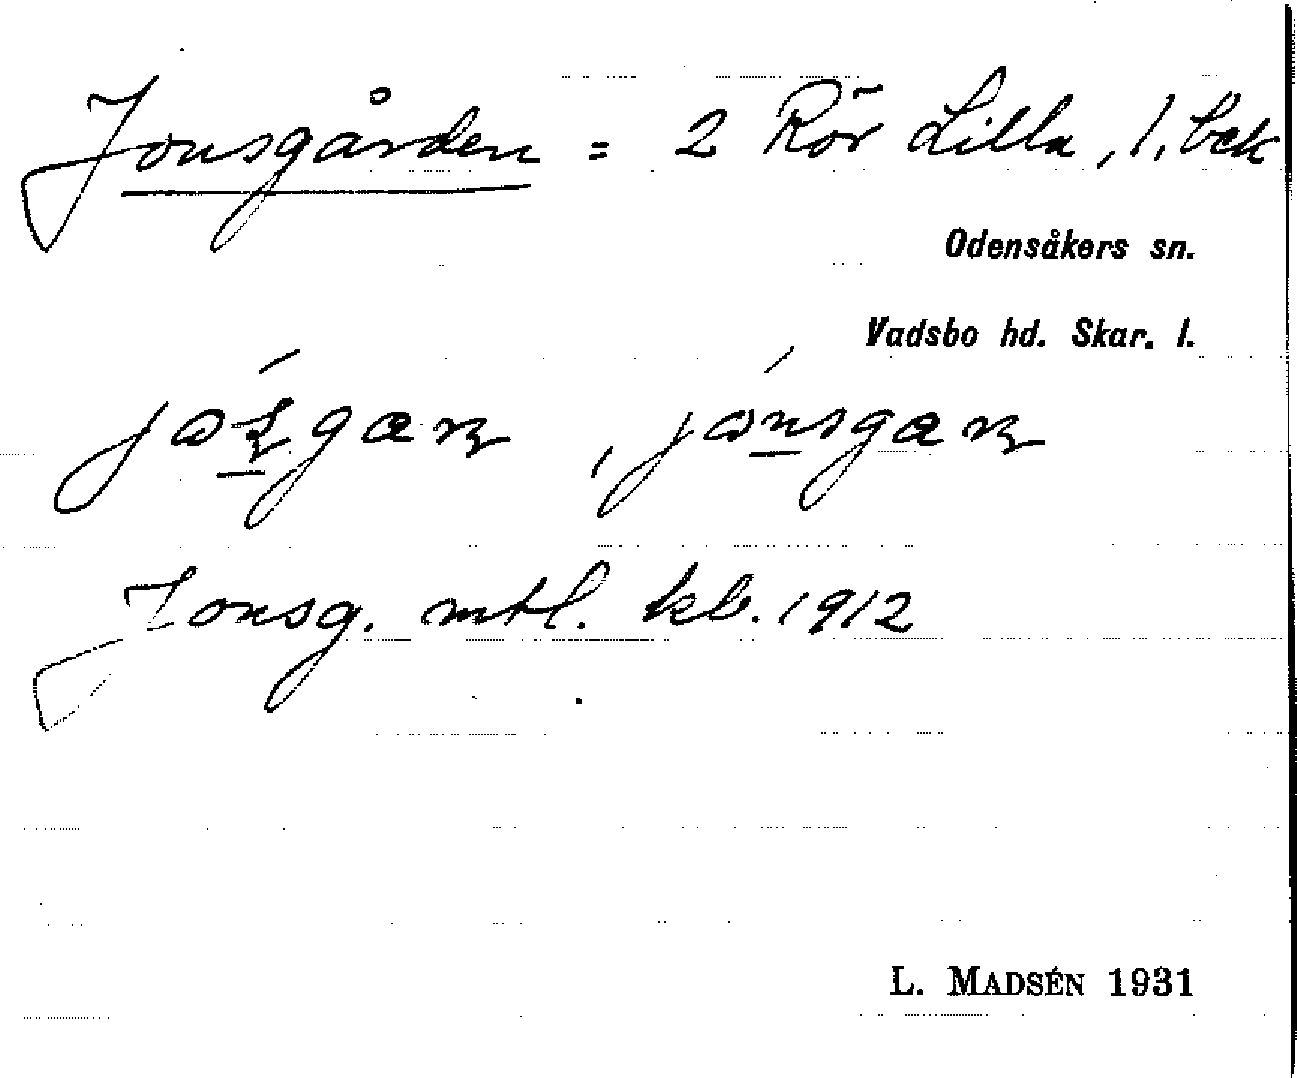 Jonsgården = 2 Rör Lilla, 1. bek
Odensåkers sn.
Vadsbo hd. Skar. l.
Jonsg. mtl. kb. 1912
L. MADSÉN 1931